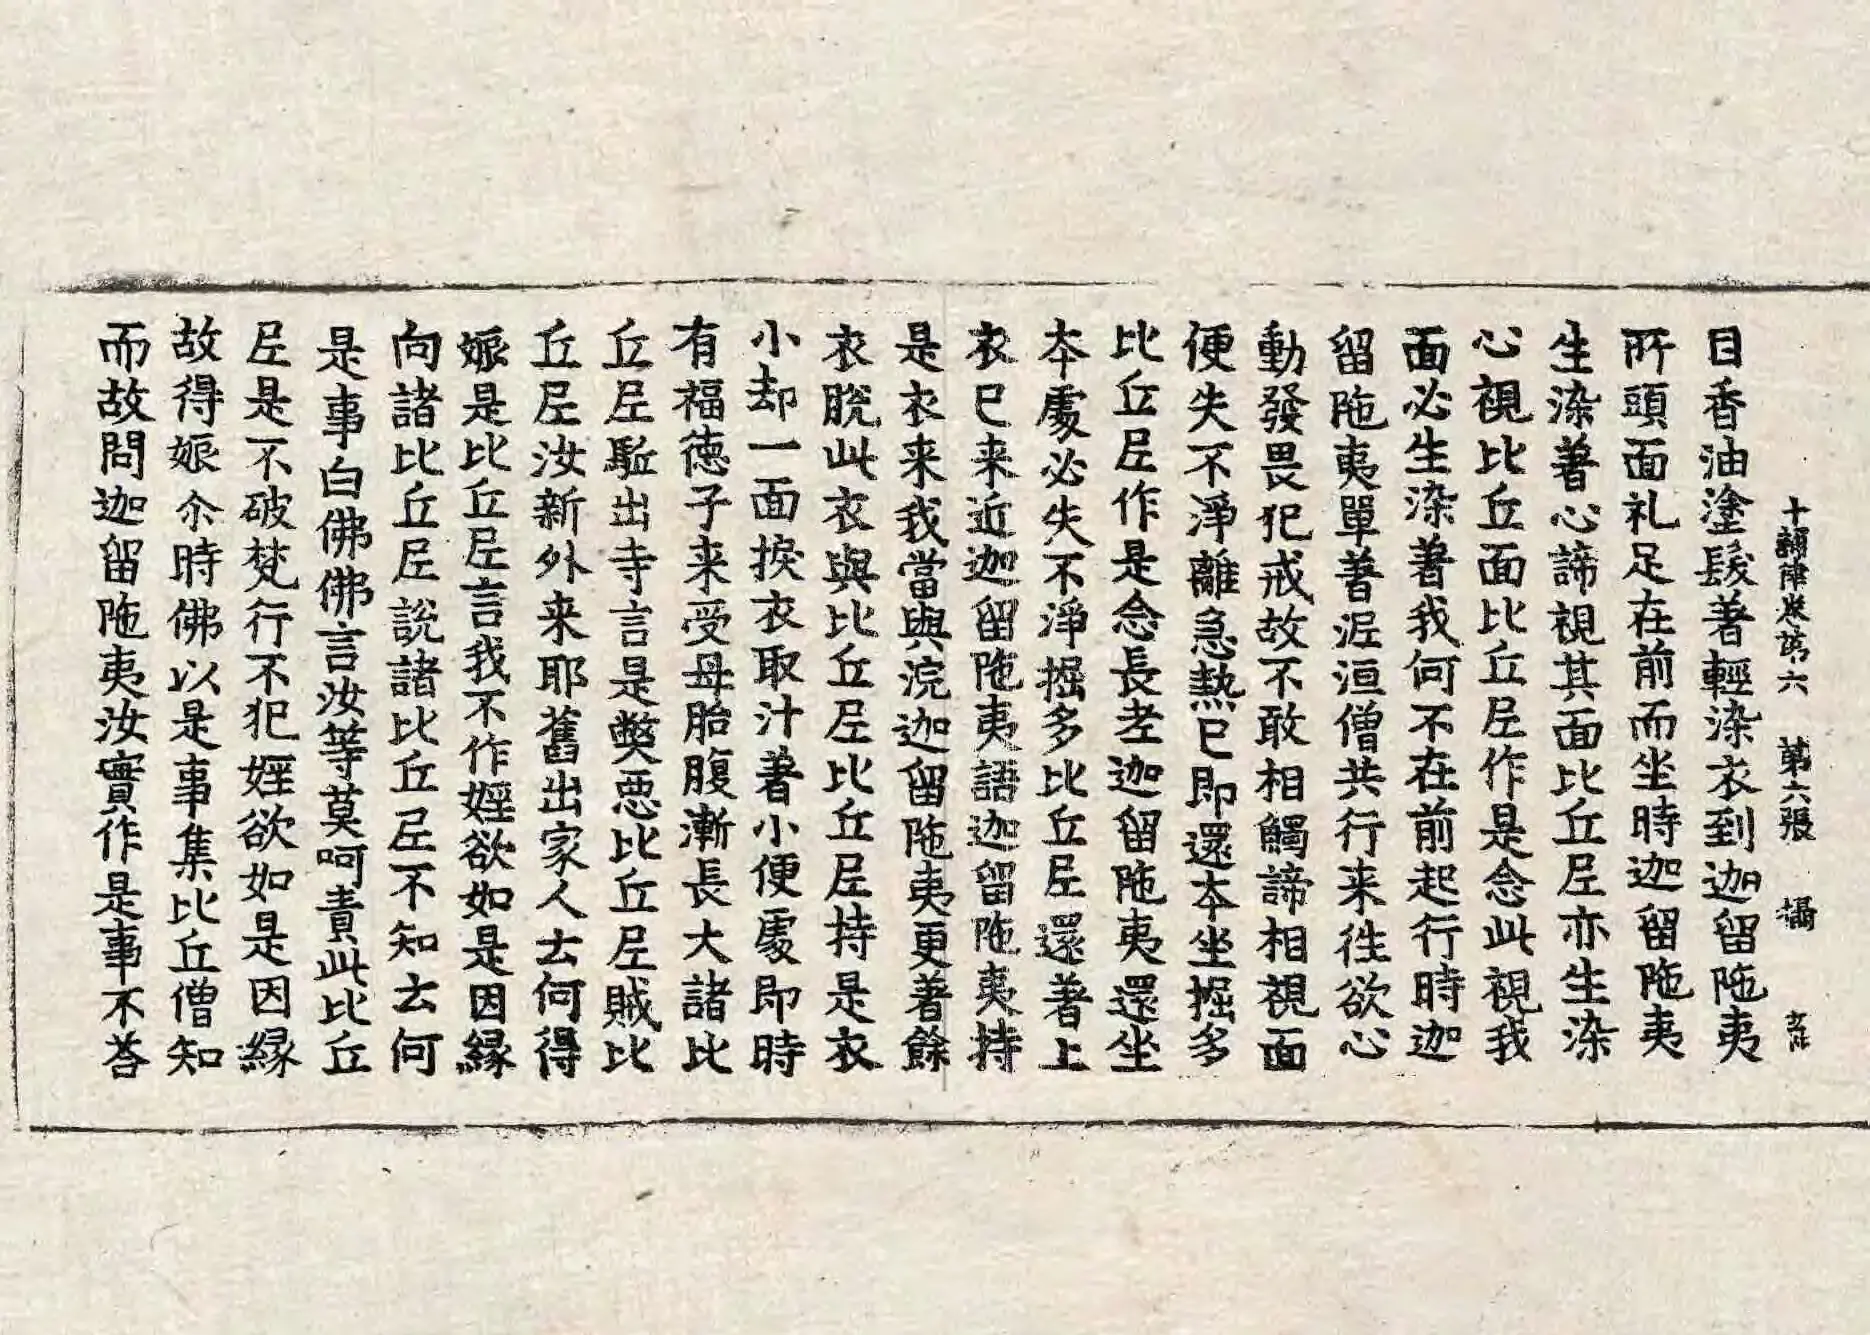 十誦律卷第六 第六張 攝
目香油塗髮著輕染衣到迦留陁夷
所頭面礼足在前而坐時迦留陁夷
生染著心諦視其面比丘尼亦生染
心視比丘面比丘尼作是念此視我
面必生染著我何不在前起行時迦
留陁夷單著泥洹僧共行来往欲心
動發畏犯戒故不敢相觸諦相視面
便失不淨離急熱已即還本坐掘多
比丘尼作是念長老迦留陁夷還坐
本處必失不淨掘多比丘尼還著上
衣已来近迦留陁夷語迦留陁夷持
是衣来我當與浣迦留陁夷更著餘
衣脫此衣與比丘尼比丘尼持是衣
小却一面捩衣取汁著小便處即時
有福德子来受母胎腹漸長大諸比
丘尼駈出寺言是弊惡比丘尼賊比
丘尼汝新外来耶舊出家人云何得
娠是比丘尼言我不作婬欲如是因縁
向諸比丘尼說諸比丘尼不知云何
是事白佛佛言汝等莫呵責此比丘
尼是不破梵行不犯婬欲如是因縁
故得娠尒時佛以是事集比丘僧知
而故問迦留陁夷汝實作是事不荅